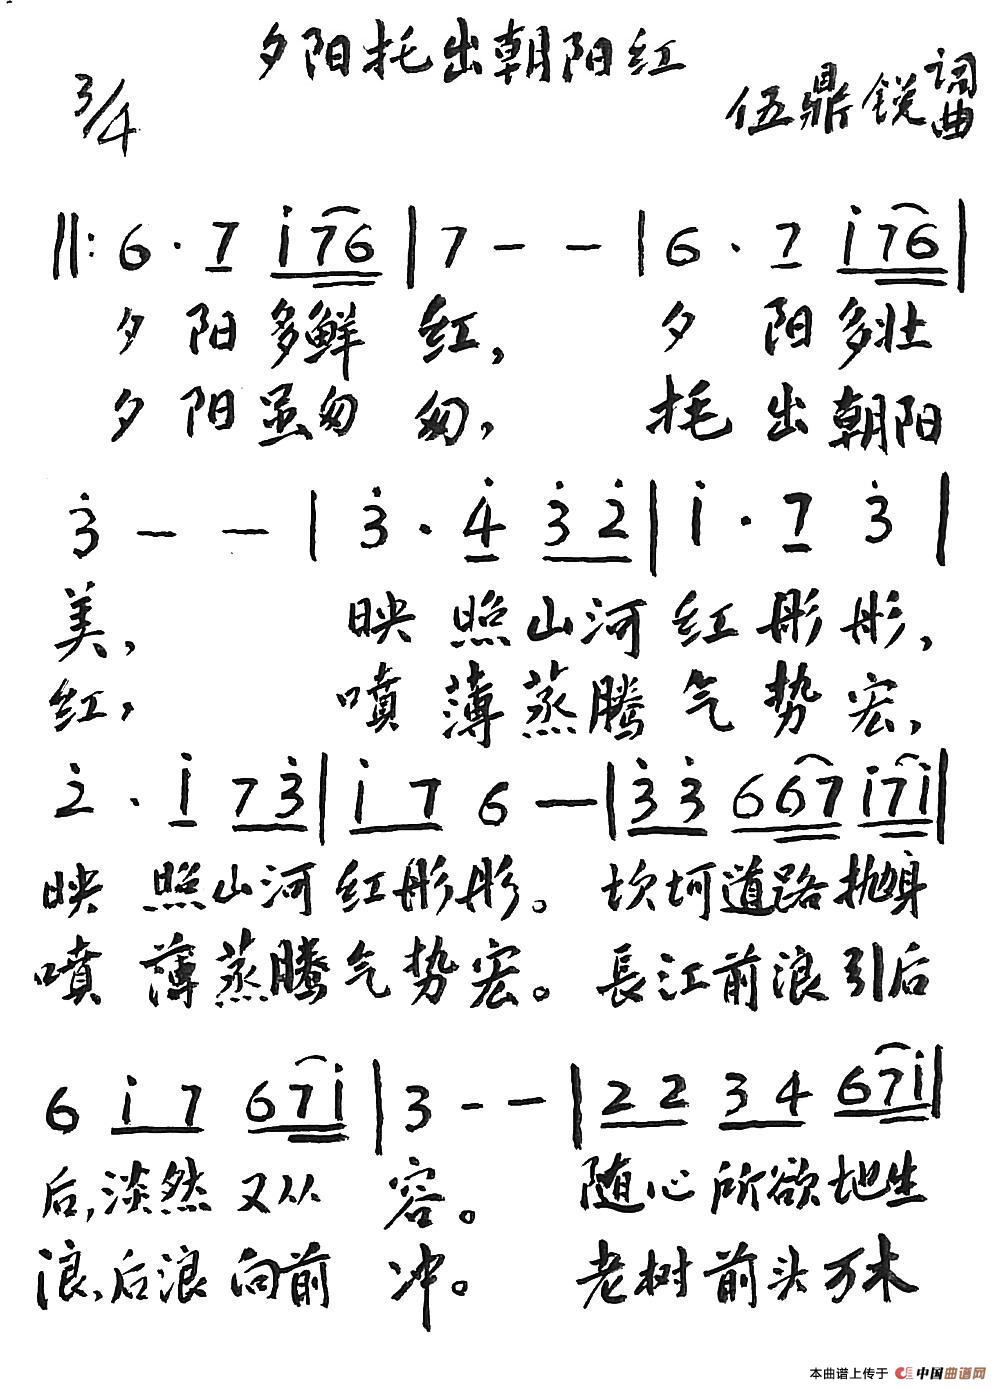 夕阳托出朝阳红
3/4
伍鼎锐 词曲
‖: 6 · 7 i 7 6 | 7 - - | 6 · 7 i 7 6 |
夕 阳 多鲜 红， 夕 阳 多壮
夕 阳 虽匆 匆， 托 出 朝阳
3 - - | 3 · 4 3 2 | i · 7 3 |
美， 映 照山河 红 彤 彤，
红， 喷 薄蒸腾 气 势 宏，
2 · i 7 3 | i 7 6 - | 3 3 6 6 7 i 7 i |
映 照山河 红彤彤。 坎坷道路抛身
喷 薄蒸腾气势宏。 長江前浪引后
6 i 7 6 7 i | 3 - - | 2 2 3 4 6 7 i |
后，淡然又从 容。 随心所欲地生
浪、后浪向前 冲。 老树前头万木
本曲谱上传于 中国曲谱网